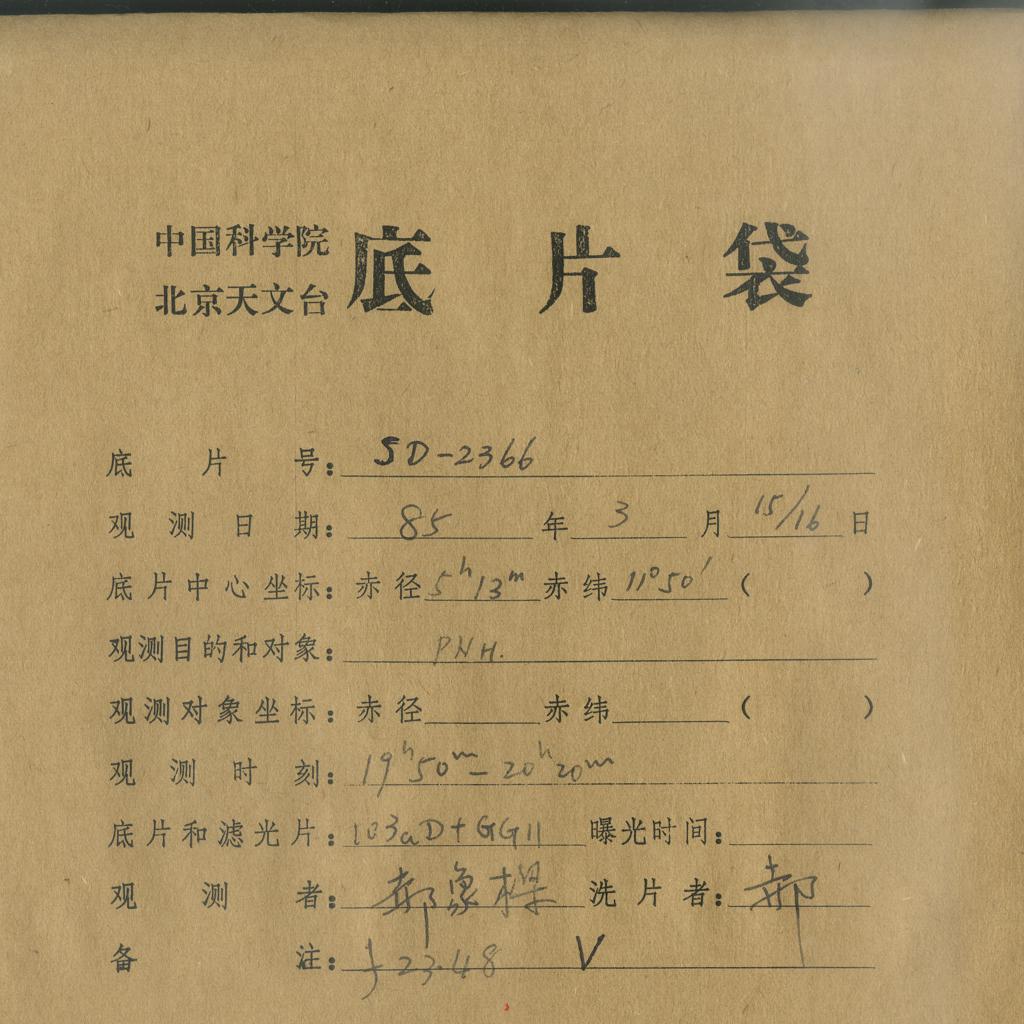 中国科学院
北京天文台
底片袋
底片号：SD-2366
观测日期：85年3月15/16日
底片中心坐标：赤径5h13m赤纬11°50′（ ）
观测目的和对象：PNH.
观测对象坐标：赤径 赤纬 （ ）
观测时刻：19h50m-20h20m
底片和滤光片：103aD+GG11 曝光时间：
观测者：郝象樑 洗片者：郝
备注：23.48 V